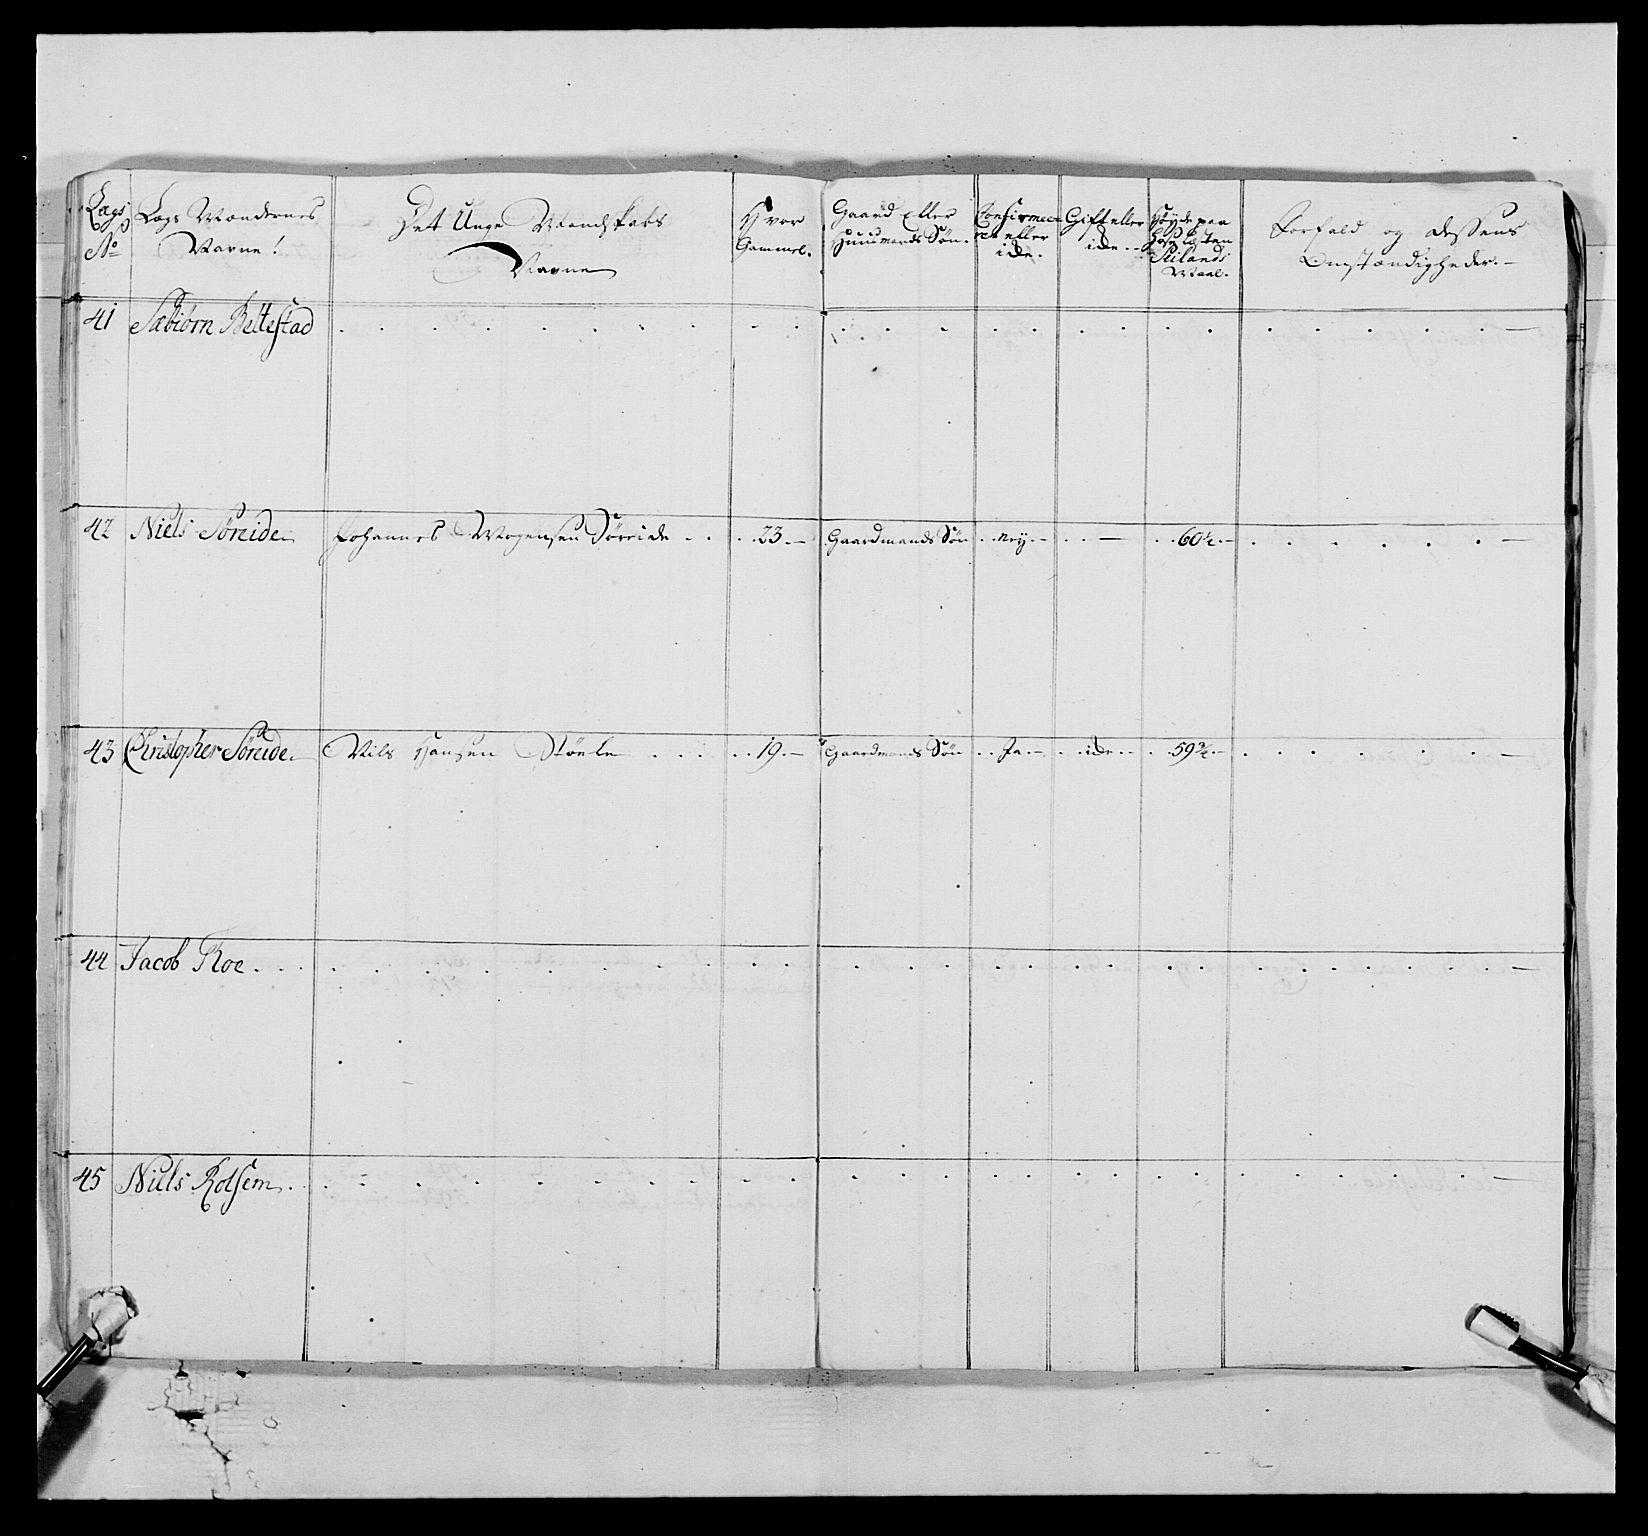 Lægs No
Lægs Mændernes Navne!
Det Unge Mandskabs Navne
Hvor Gammel.
Gaard Eller Huusmands Søn.
Confirmeret eller icke.
Gift eller icke.
Høyde paa Hose læsten Siælands Maal.
Forfald og dessens Omstændigheder.
41 Sæbiørn Beltestad
42 Niels Søreide Johannes Mogensen Søreide 23 Gaardmands Søn ney — 60½
43 Christopher Søreide Nils Hansen Støele 19 Gaardmands Søn Ja icke 59¾
44 Jacob Roe
45 Niels Kolsem